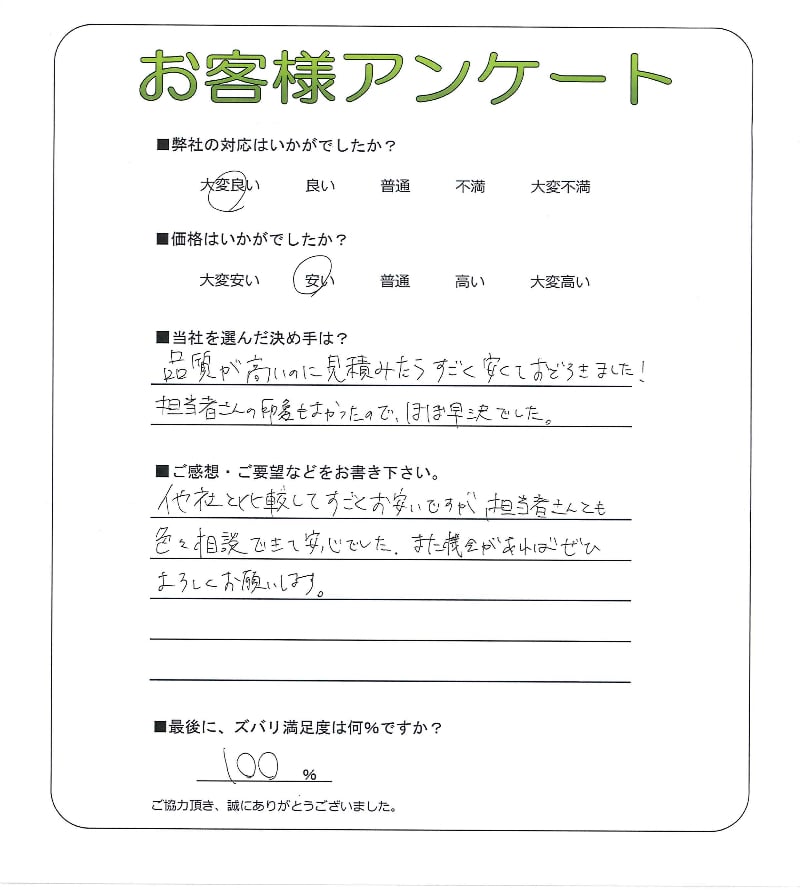 お客様アンケート
■弊社の対応はいかがでしたか？
大変良い 良い 普通 不満 大変不満
■価格はいかがでしたか？
大変安い 安い 普通 高い 大変高い
■当社を選んだ決め手は？
品質が高いのに見積みたらすごく安くておどろきました！
担当者さんの印象もよかったので、ほぼ即決でした。
■ご感想・ご要望などをお書き下さい。
他社と比較してすごくお安いですが、担当者さんとも
色々相談できて安心でした。また機会があればぜひ
よろしくお願いします。
■最後に、ズバリ満足度は何％ですか？
100 ％
ご協力頂き、誠にありがとうございました。